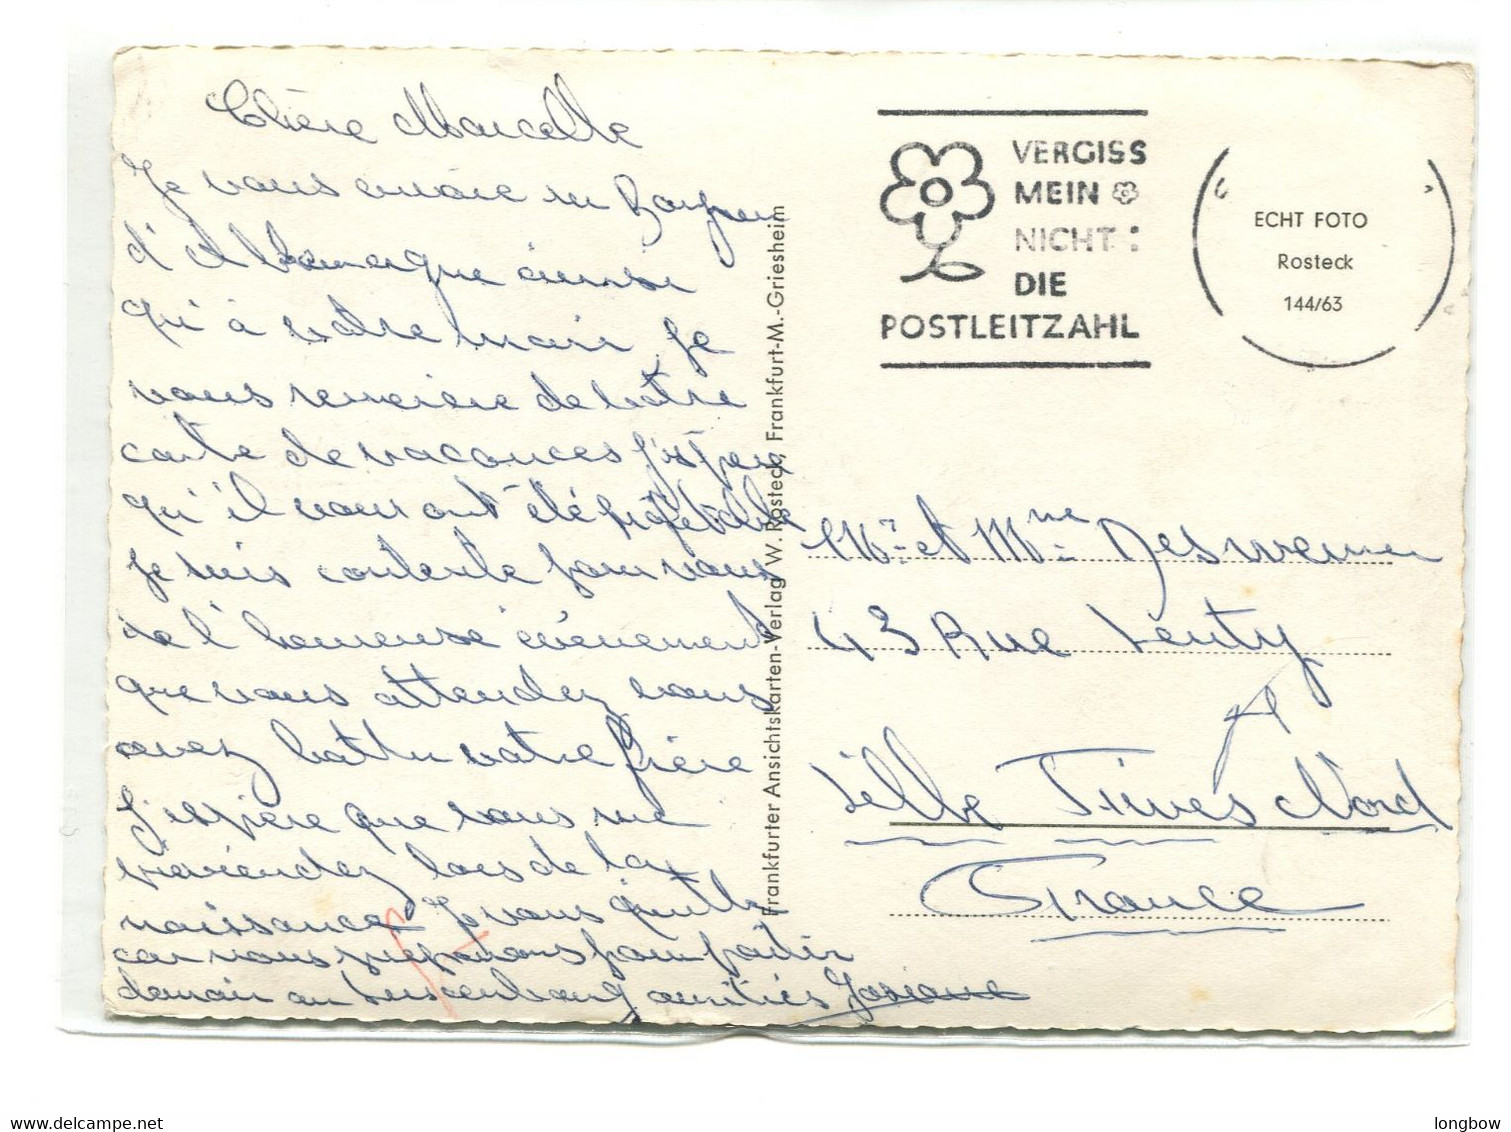 Chère Marcelle
Je vous envoie un Bonjour
d'Allemangque ainsi
qu'à votre mari, Je
vous remercie de votre
carte de vacances j'espère
qu'il vous ont été profitable
Je suis contente pour vous
de l'heureuse évènement
que vous attendez vous
avez battu votre frère
J'espère que vous me
préviendez lors de la
naissance Je vous quitte
car nous préparons pour partir
demain au Luxembourg amitiés Josiane
Frankfurter Ansichtskarten-Verlag W. Rosteck, Frankfurt-M.-Griesheim
VERGISS
MEIN
NICHT:
DIE
POSTLEITZAHL
ECHT FOTO
Rosteck
144/63
Mr. et Mme.
43 Rue
Lille Fives Nord
France
www.delcampe.net
longbow